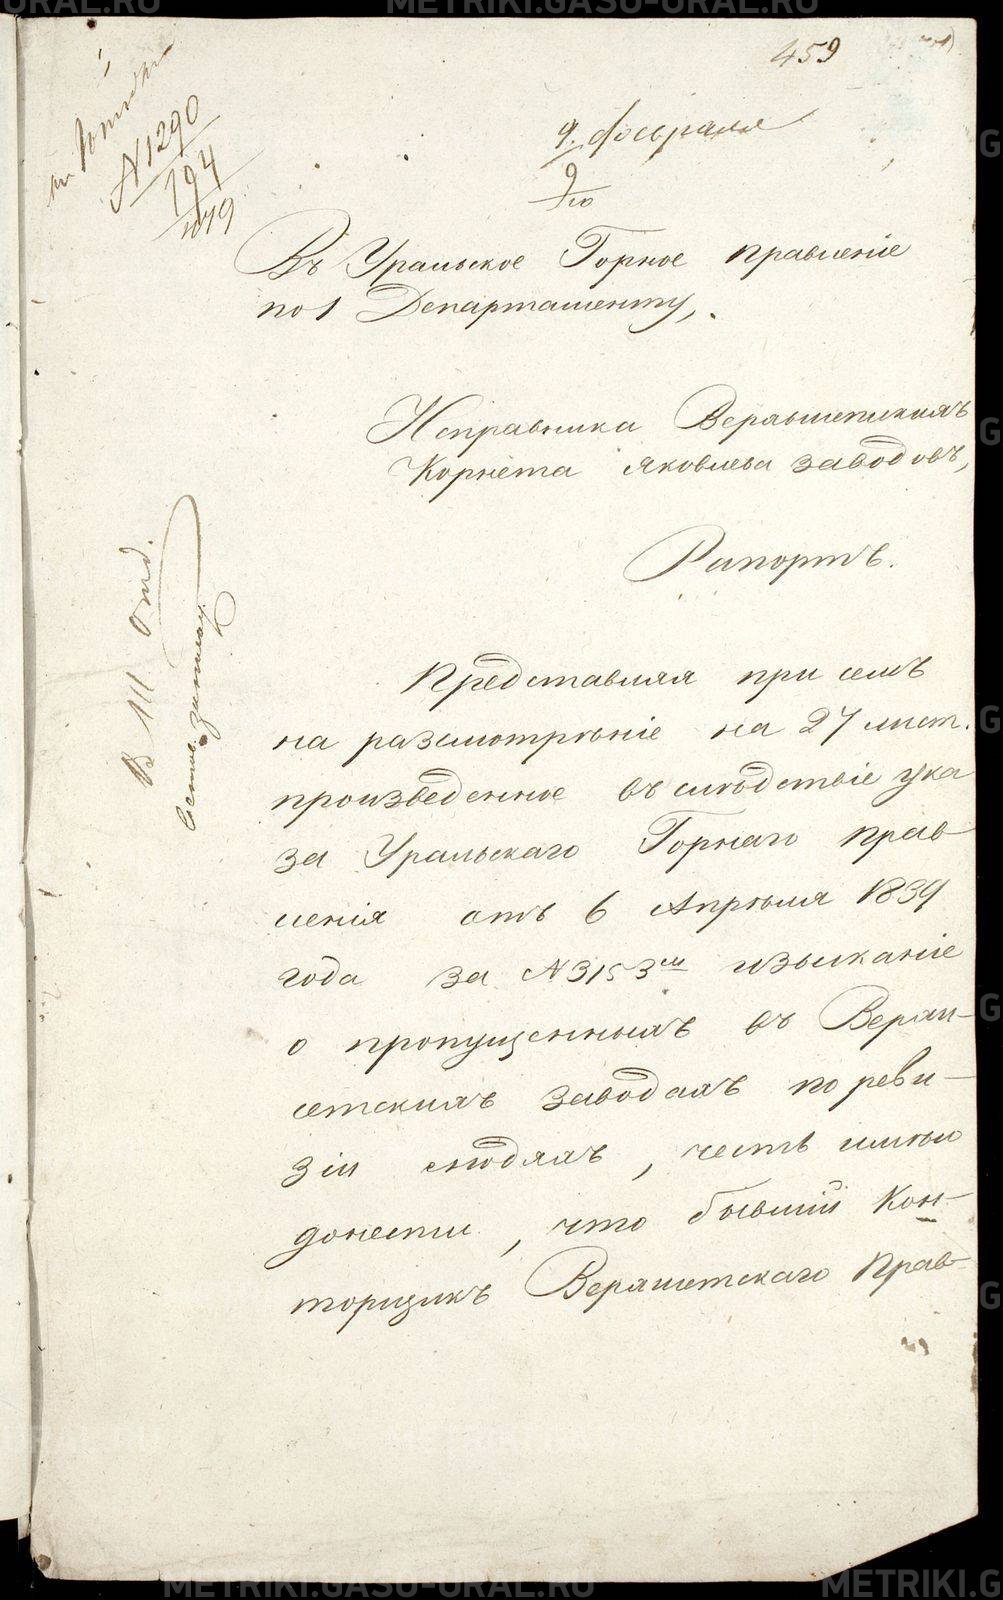 459
N 1290
194
1079
9. февраля
9
Въ Уральское Горное Правленіе
по 1 Департаменту,
Исправника Верхъисетскихъ
Корнета Яковлева заводовъ,
Рапортъ.
В III Отд.
Представляя при семъ
на разсмотрѣніе на 27 лист.
произведенное въ слѣдствіе ука
за Уральскаго Горнаго Прав
ленія отъ 6 Апрѣля 1839
года за N 3153м изысканіе
о пропущенныхъ въ Верхъи-
сетскихъ заводахъ по реви-
зіи людяхъ, честь имѣю
донести, что бывшій Кон-
торщикъ Верхисетскаго Прав-
METRIKI.GASU-URAL.RU
METRIKI.GASU-URAL.RU